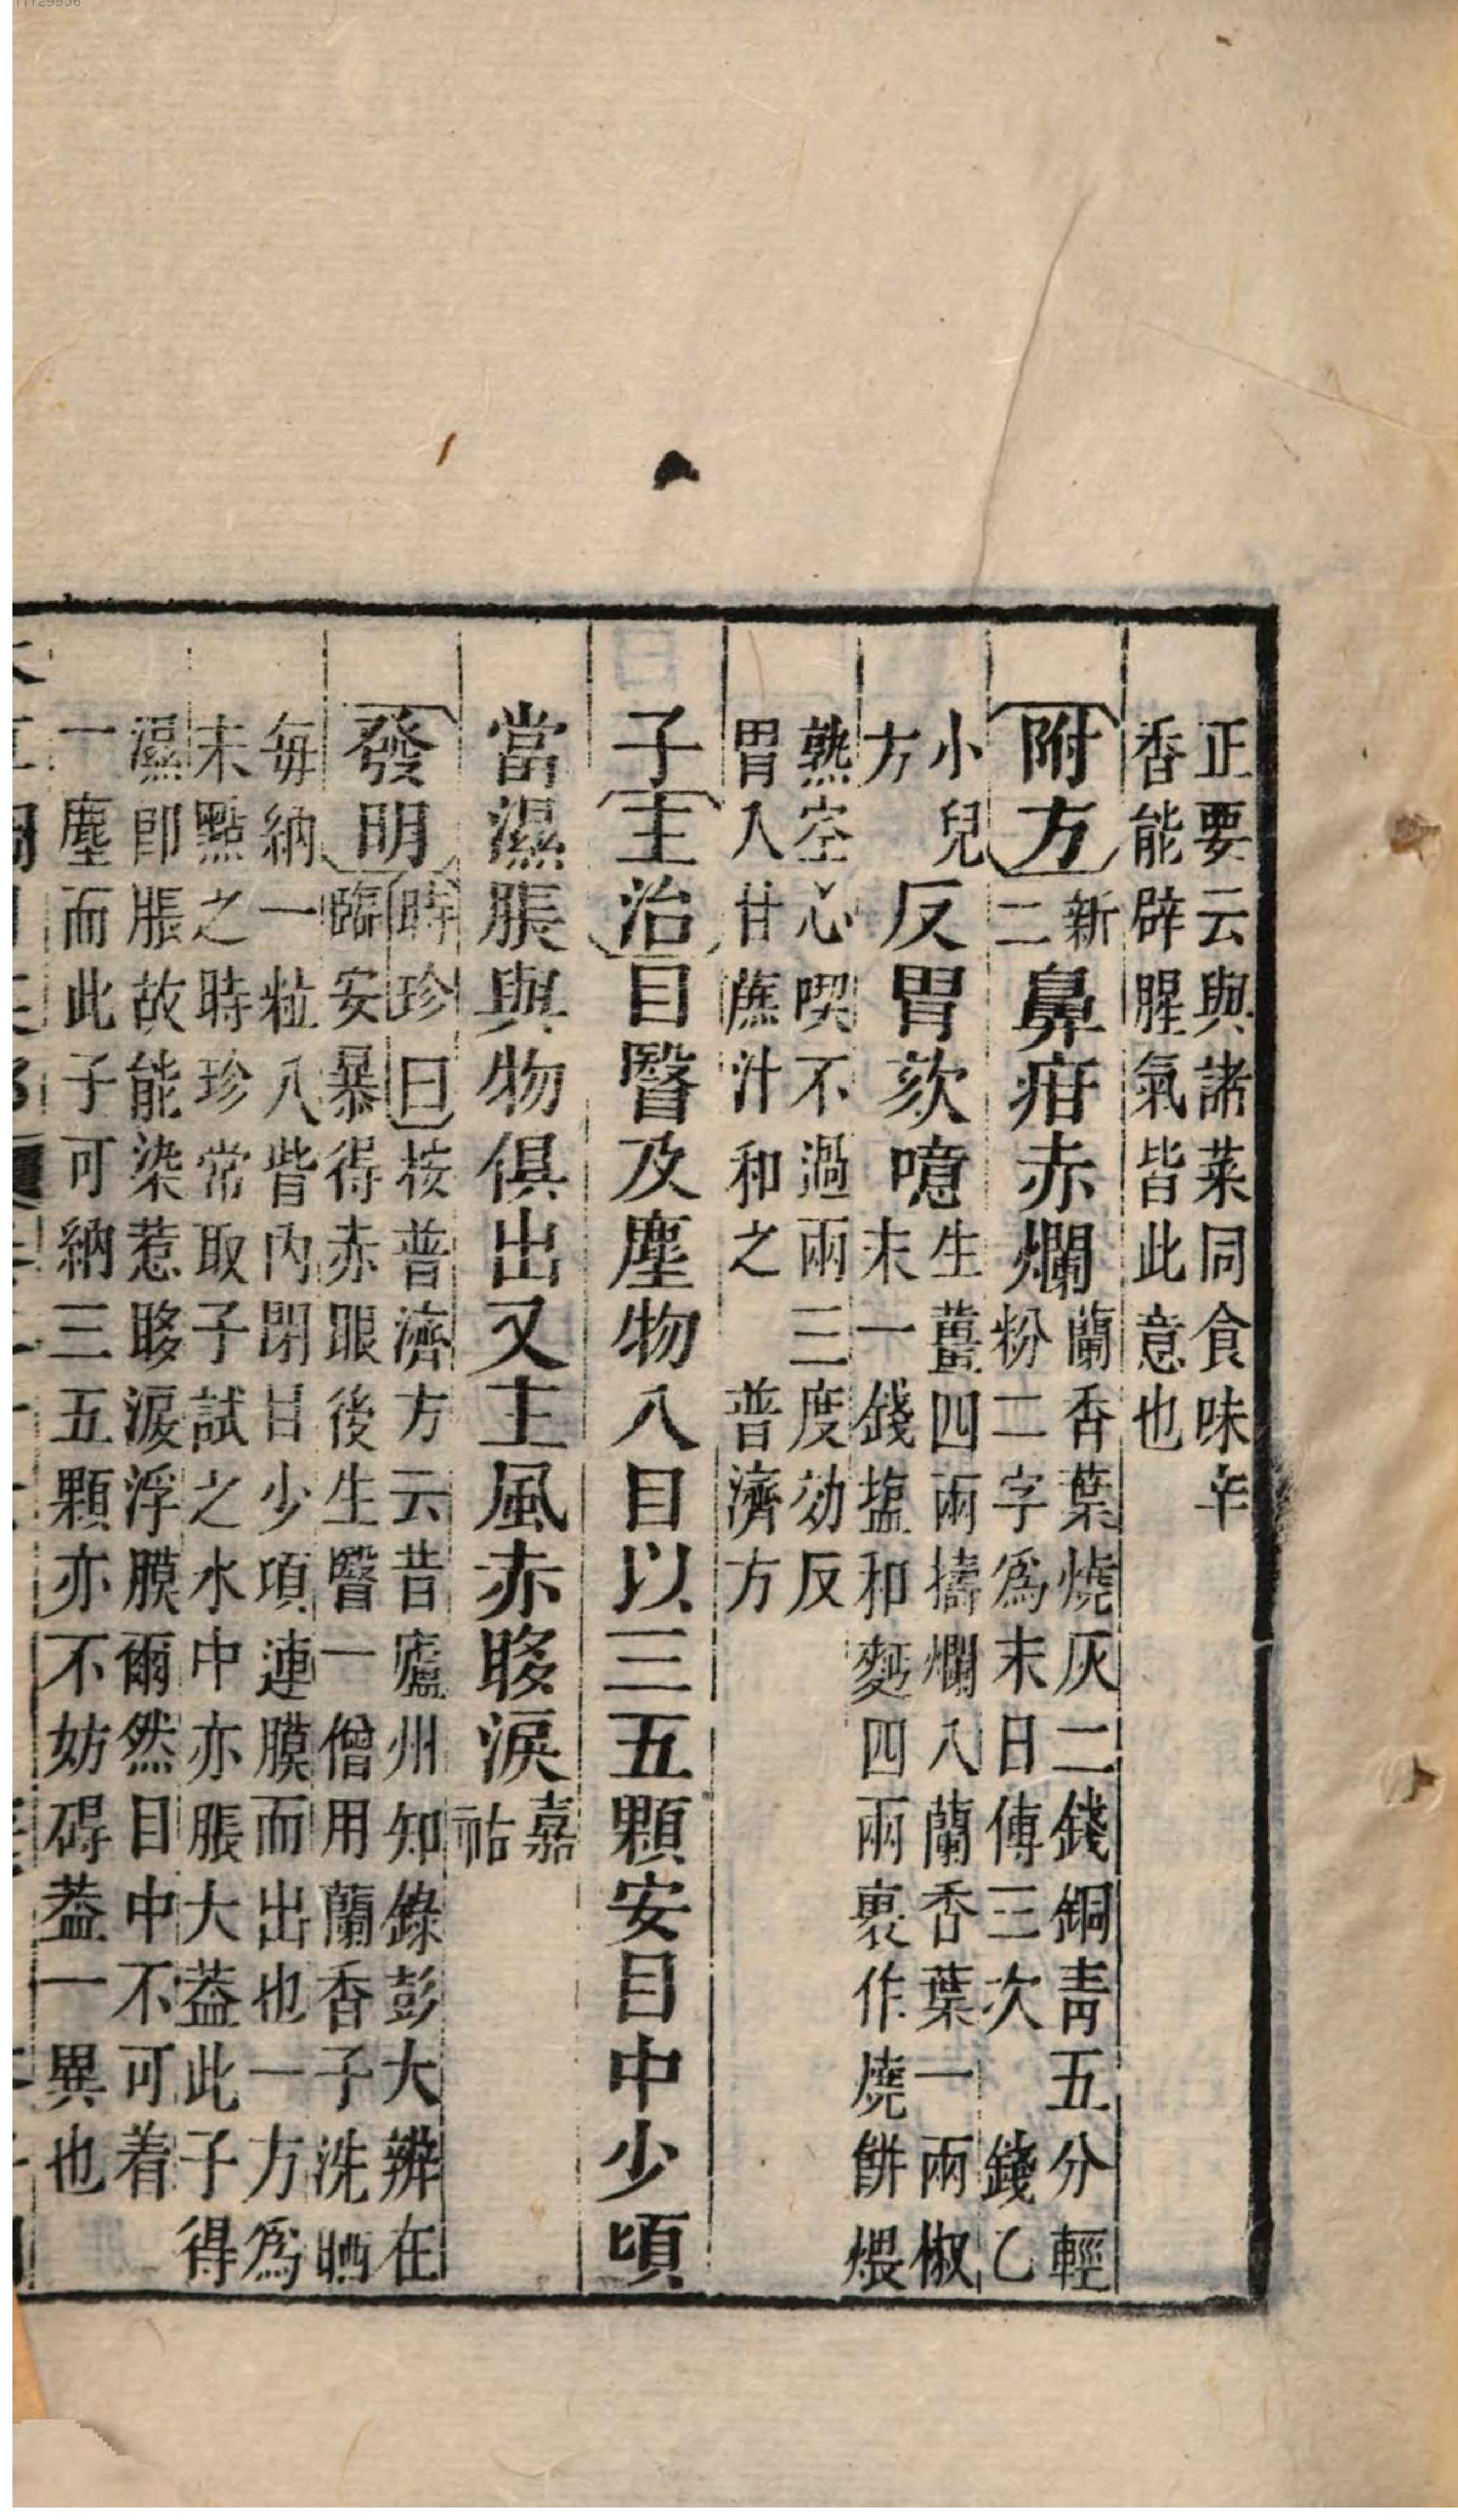 正要云與諸菜同食味辛
香能辟腥氣皆此意也
附方新二鼻疳赤爛蘭香葉燒灰二錢銅靑五分輕粉二字爲末日傅三次 錢乙
小兒方反胃欬噫生薑四兩擣爛入蘭香葉一兩椒末一錢塩和麪四兩裹作燒餠煨
熟空心喫不過兩三度効反
胃人甘蔗汁和之 普濟方
子主治目瞖及塵物入目以三五顆安目中少頃
當濕脹與物俱出又主風赤眵淚嘉祐
發明時珍曰按普濟方云昔廬州知錄彭大辨在臨安暴得赤眼後生瞖一僧用蘭香子洗晒
每納一粒入眥內閉目少項連膜而出也一方爲
末點之時珍常取子試之水中亦脹大葢此子得
濕卽脹故能染惹眵淚浮膜爾然目中不可着
一塵而此子可納三五顆亦不妨碍葢一異也